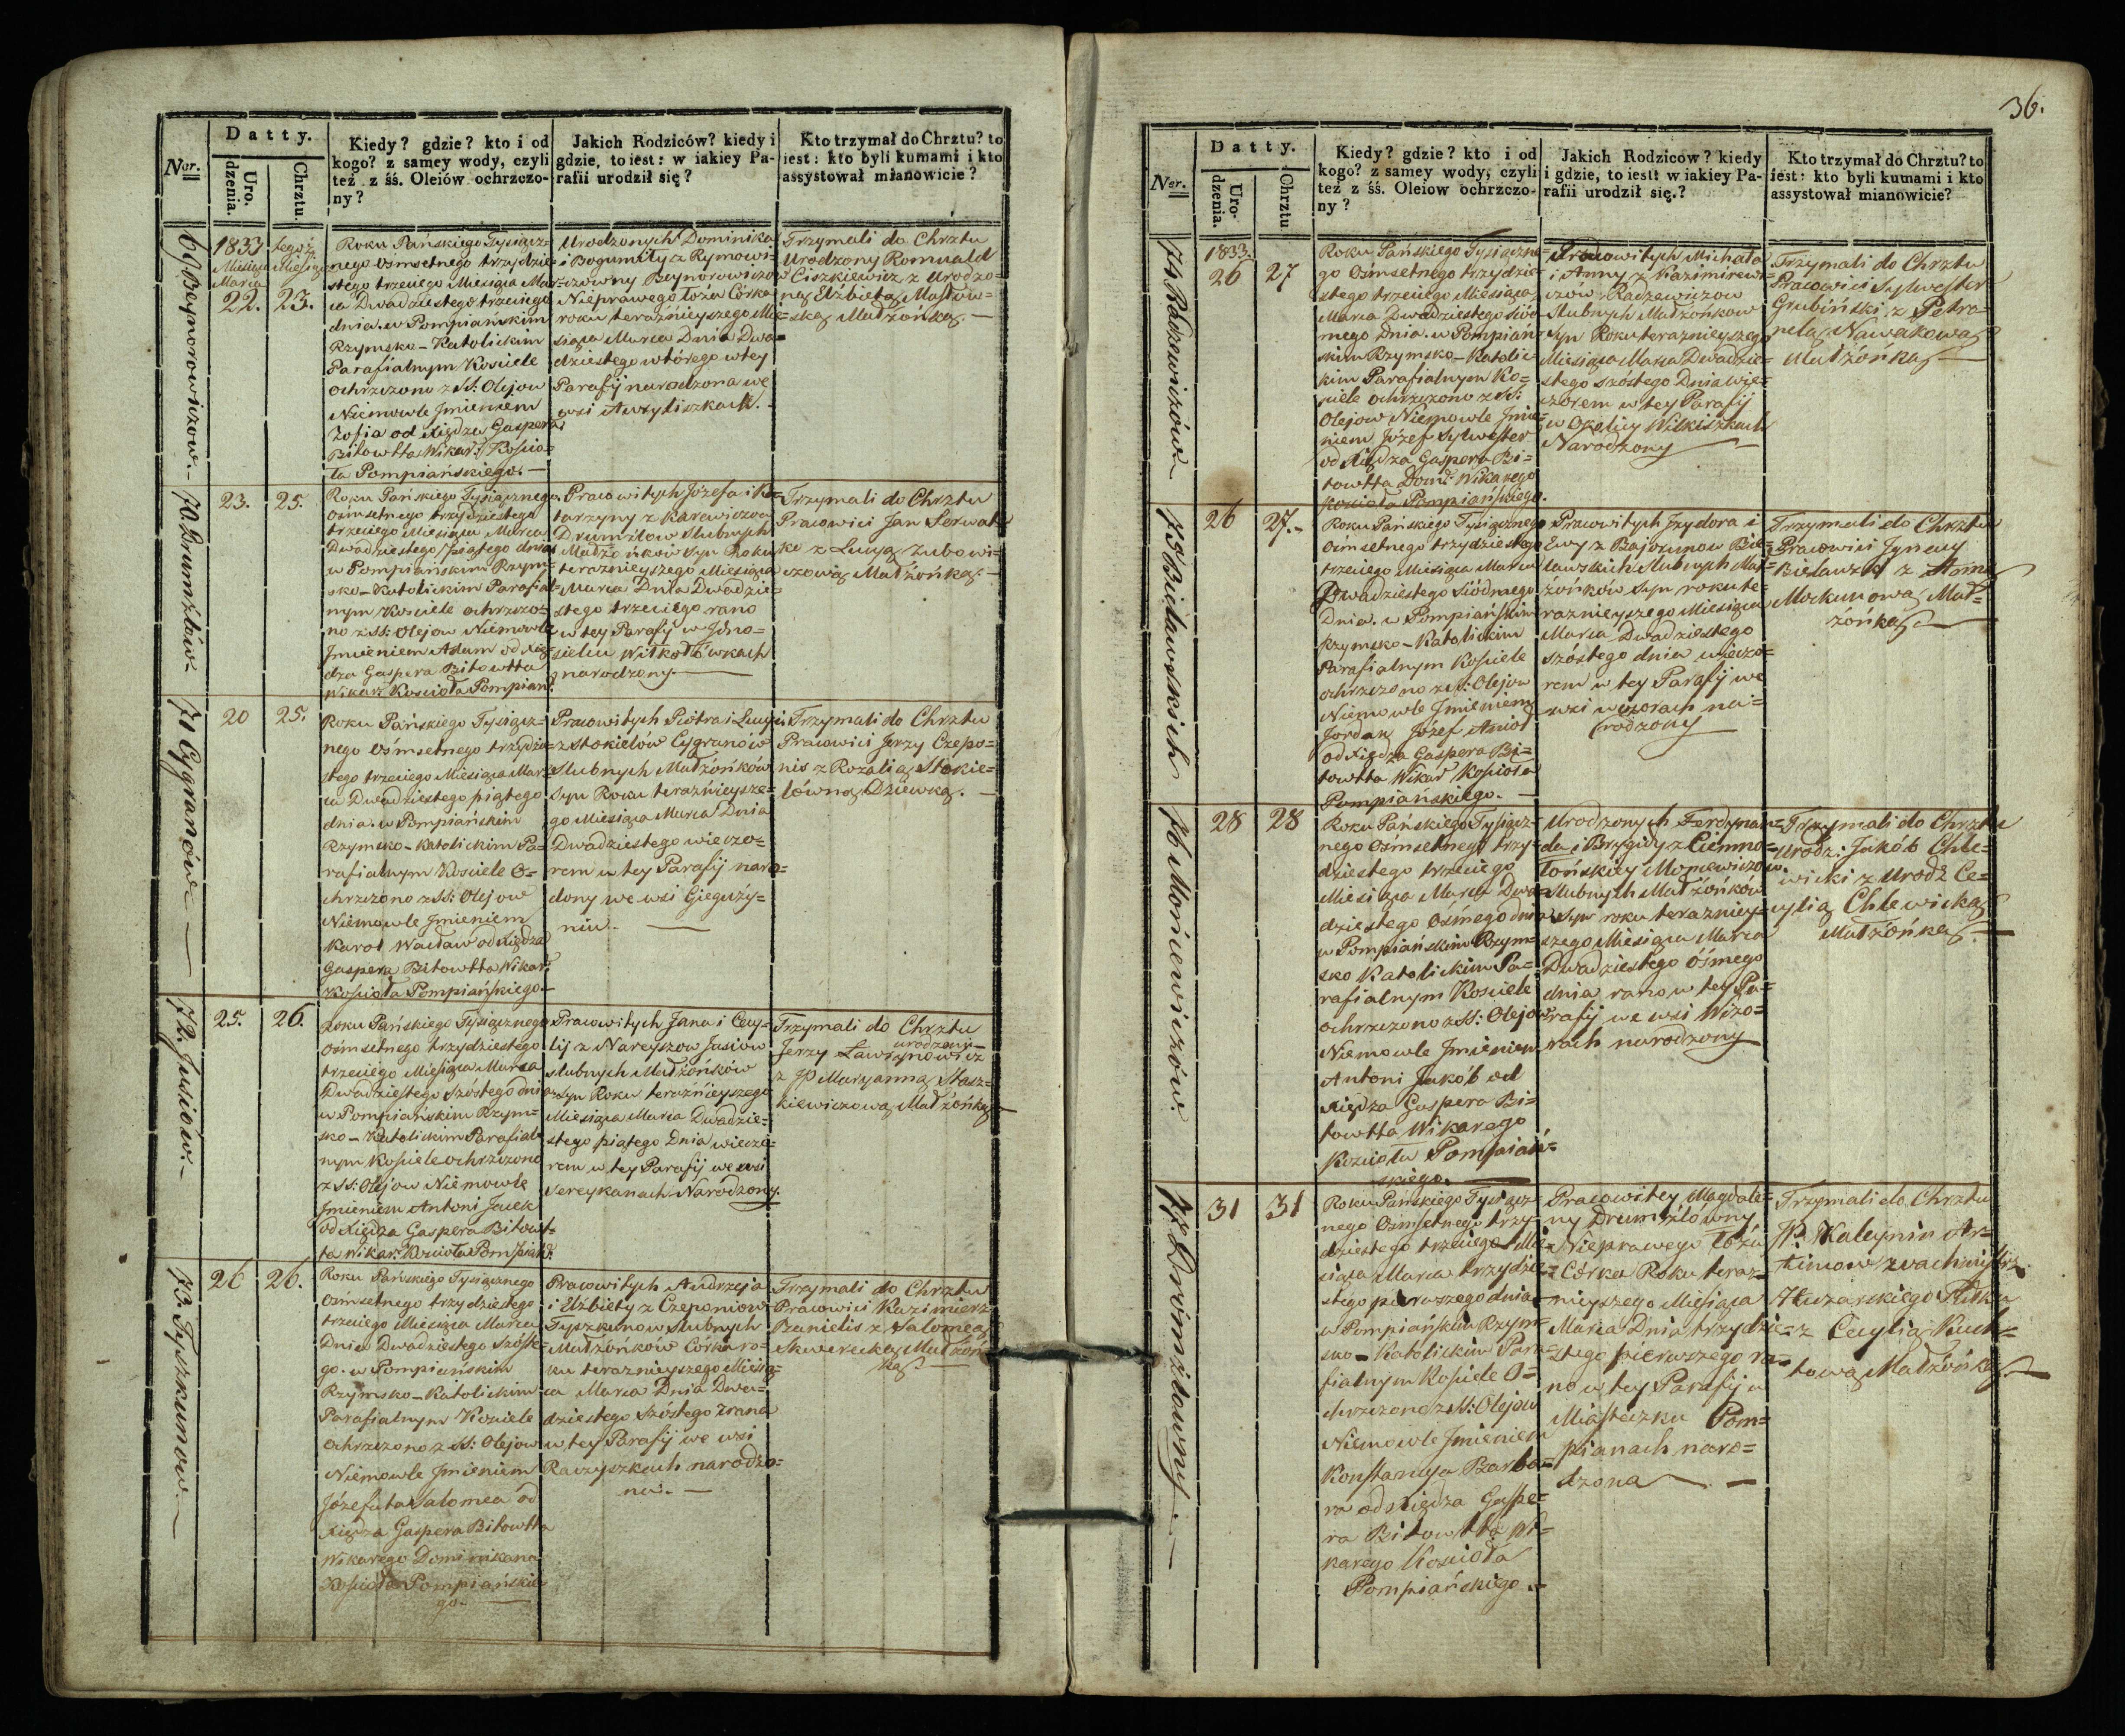 Datty.
Ner.
Uro.
dzenia.
Chrztu.
Kiedy? gdzie? kto i od
kogo? z samey wody, czyli
też z śś. Oleiów ochrzczo-
ny?
Jakich Rodziców? kiedy i
gdzie, to iest: w iakiey Pa-
rafii urodził się?
Kto trzymał do Chrztu? to
iest: kto byli kumami i kto
assystował mianowicie?
69 Beynorowiczow.-
1833
Miesiąca
Marca
22.
tegoż
Miesiąca
23.
Roku Pańskiego Tysiącz-
nego Ośmsetnego trzydzie-
stego trzeciego Miesiąca Mar-
ca Dwudziestego trzeciego
dnia. w Pompiańskim
Rzymsko-Katolickim
Parafialnym Kosciele
ochrzczono z SS: Olejow
Niemowle Jmieniem
Zofia od Xiędza Gaspera
Bitowtta Wikar: Kościo-
ła Pompiańskiego.-
Urodzonych Dominika
i Bogumiły z Rymowi-
czowny Beynorowiczow
Nieprawego Łoża Córka
roku teraznieyszego Mie-
siąca Marca Dnia Dwu-
dziestego wtórego w tey
Parafij narodzona we
wsi Auzyliszkach.
Trzymali do Chrztu
Urodzony Romuald
Ciszkiewicz z Urodzo-
ną Elżbietą Masłow-
ską Małżonką.-
70 Drumżłów
23.
25.
Roku Pańskiego Tysiącznego
Ośmsetnego trzydziestego
trzeciego Miesiąca Marca
Dwudziestego piątego dnia
w Pompiańskim Rzym-
sko-Katolickim Parafial-
nym Kosciele ochrzczo-
no z SS: Olejow Niemowle
Jmieniem Adam od Xię-
dza Gaspera Bitowtta
Wikar: Kościoła Pompiań:
Pracowitych Józefa i Ka-
tarzyny z Karewiczow
Drumżlow Slubnych
Małżonków Syn Roku
teraznieyszego Miesiąca
Marca Dnia Dwudzie-
stego trzeciego rano
w tey Parafij w Jdno-
sielcu Witkołówkach
narodzony.
Trzymali do Chrztu
Pracowici Jan Serwat-
ko z Lucyą Zubowi-
czową Małżonką.-
71 Cygranów
20
25.
Roku Pańskiego Tysiącz-
nego Ośmsetnego trzydzie-
stego trzeciego Miesiąca Mar-
ca Dwudziestego piątego
dnia. w Pompiańskim
Rzymsko-Katolickim Pa-
rafialnym Kosciele O-
chrzczono z SS: Olejow
Niemowle Jmieniem
Karol Wacław od Xiędza
Gaspera Bitowtta Wikar:
Kościoła Pompiańskiego-
Pracowitych Piotra i Lucyi
z Stokielów Cygranów
Slubnych Małżonków
Syn Roku teraznieysze-
go Miesiąca Marca Dnia
Dwudziestego wieczo-
rem w tey Parafij naro-
dony we wsi Gieguży-
niu.-
Trzymali do Chrztu
Pracowici Jerzy Czepo-
nis z Rozalią Stokie-
lówną Dziewką.-
72. Jusiów.-
25.
26.
Roku Pańskiego Tysiącznego
Ośmsetnego trzydziestego
trzeciego Miesiąca Marca
Dwudziestego Szóstego dnia
w Pompiańskim Rzym-
sko-Katolickim Parafial-
nym Kosciele ochrzczono
z SS: Olejow Niemowle
Jmieniem Antoni Jacek
od Xiędza Gaspera Bitowt-
ta Wikar: Kościoła Pompiań:
Pracowitych Jana i Cecy-
lij z Nareyszow Jusiow
slubnych Małżonków
Syn Roku teraźnieyszego
Miesiąca Marca Dwudzie-
stego piątego Dnia wieczo-
rem w tey Parafij we wsi
Sereykanach Narodzony.
Trzymali do Chrztu
urodzony
Jerzy Ławrynowicz
z JP Maryanną Stasz-
kiewiczową Małżonką
73. Tyszkunow-
26
26.
Roku Pańskiego Tysiącznego
Ośmsetnego trzydziestego
trzeciego Miesiąca Marca
Dnia Dwudziestego Szóste-
go. w Pompiańskim
Rzymsko-Katolickim
Parafialnym Kosciele
Ochrzczono z SS: Olejow
Niemowle Jmieniem
Józefata Salomea od
Xiędza Gaspera Bitowtta
Wikarego Dominikana
Kościoła Pompiańskie-
go.
Pracowitych Andrzeja
i Elżbiety z Czeponiow
Tyszkunow Slubnych
Małżonkow Córka ro-
ku teraznieyszego Miesią-
ca Marca Dnia Dwu-
dziestego Szóstego zrana
w tey Parafij we wsi
Raczyszkach narodzo-
na.-
Trzymali do Chrztu
Pracowici Kazimierz
Banielis z Salomeą
Skwerecką Małżon-
ką
36.
Datty.
Ner.
Uro-
dzenia.
Chrztu
Kiedy? gdzie? kto i od
kogo? z samey wody, czyli
też z śś. Oleiow ochrzczo-
ny?
Jakich Rodzicow? kiedy
i gdzie, to iest: w iakiey Pa-
rafii urodził się.?
Kto trzymał do Chrztu? to
iest: kto byli kumami i kto
assystował mianowicie?
74 Radzewiczów-
1833.
26
27
Roku Pańskiego Tysiączne-
go Ośmsetnego trzydzie-
stego trzeciego Miesiąca
Marca Dwudziestego Siód-
mego Dnia. w Pompiań-
skim Rzymsko-Katolic-
kim Parafialnym Ko-
sciele ochrzczono z SS:
Olejow Niemowle Jmie-
niem Józef Sylwester
od Xiędza Gaspera Bi-
towtta Dom: Wikarego
Kościoła Pompiańskiego.
Pracowitych Michała
i Anny z Kazimirewi-
czów Radzewiczow
Slubnych Małżonkow
Syn Roku teraznieyszego
Miesiąca Marca Dwudzie-
stego szóstego Dnia wie-
czorem w tey Parafij
w Okolicy Wilkiszkach
Narodzony
Trzymali do Chrztu
Pracowici Sylwester
Grubiński z Petro-
nelą Nawakową
Małżonką
75 Bielawskich
26
27.-
Roku Pańskiego Tysiącznego
Ośmsetnego trzydziestego
trzeciego Miesiąca Marca
Dwudziestego Siódmego
Dnia. w Pompiańskim
Rzymsko-Katolickim
Parafialnym Kosciele
ochrzczono z SS: Olejow
Niemowle Jmieniem
Jordan Józef Anioł
od Xiędza Gaspera Bi-
towtta Wikar: Kościoła
Pompiańskiego.-
Pracowitych Jzydora i
Ewy z Bajorunow Bie-
lawskich Slubnych Mał-
żonków Syn roku te-
raznieyszego Miesiąca
Marca Dwudziestego
szóstego dnia wieczo-
rem w tey Parafij we
wsi Wizorach na-
rodzony
Trzymali do Chrztu
Pracowici Jgnacy
Bielawski z Anną
Mockunową Mał-
żonką.
76 Moncewiczów.
28
28
Roku Pańskiego Tysiącz-
nego Ośmsetnego trzy-
dziestego trzeciego
Miesiąca Marca Dwu-
dziestego Ośmego dnia
w Pompiańskim Rzym-
sko Katolickim Pa-
rafialnym Kosciele
ochrzczono z SS: Olejow
Niemowle Jmieniem
Antoni Jakób od
Xiędza Gaspera Bi-
towtta Wikarego
Kościoła Pompiań-
skiego.
Urodzonych Ferdynan-
da i Brygidy z Ciemno-
łońskiey Moncewiczow
Slubnych Małżonków
Syn roku terazniey-
szego Miesiąca Marca
Dwudziestego Ośmego
dnia rano w tey Pa-
rafij we wsi Wizo-
rach narodzony
Trzymali do Chrztu
Urodz: Jakób Chle-
wicki z Urodz Ce-
cylią Chlewicką
Małżonką
77 Dromżlowny.-
31
31
Roku Pańskiego Tysiącz-
nego Ośmsetnego trzy-
dziestego trzeciego Mie-
siąca Marca trzydzie-
stego pierwszego dnia
w Pompiańskim Rzym-
sko-Katolickim Para-
fialnym Kosciele O-
chrzczono z SS: Olejow
Niemowle Jmieniem
Konstancya Barba-
ra od Xiędza Gaspe-
ra Bitowtta Wi-
karego Kościoła
Pompiańskiego.-
Pracowitey Magdale-
ny Drumżlówny
Nieprawego Łoża
Córka Roku teraz-
nieyszego Miesiąca
Marca Dnia trzydzie-
stego pierwszego ra-
no w tey Parafij w
Miasteczku Pom-
pianach naro-
dzona
Trzymali do Chrztu
JP. Kaleynin Ar-
timow wachmistrz
Huzarskiego Pułku
z Cecylią Kuck-
tową Małżonką